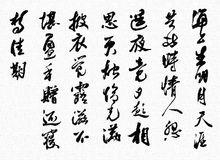 海上生明月天涯
共此時情人怨
遙夜竟夕起相
思滅燭憐光滿
披衣覺露滋不
堪盈手贈還寢
夢佳期